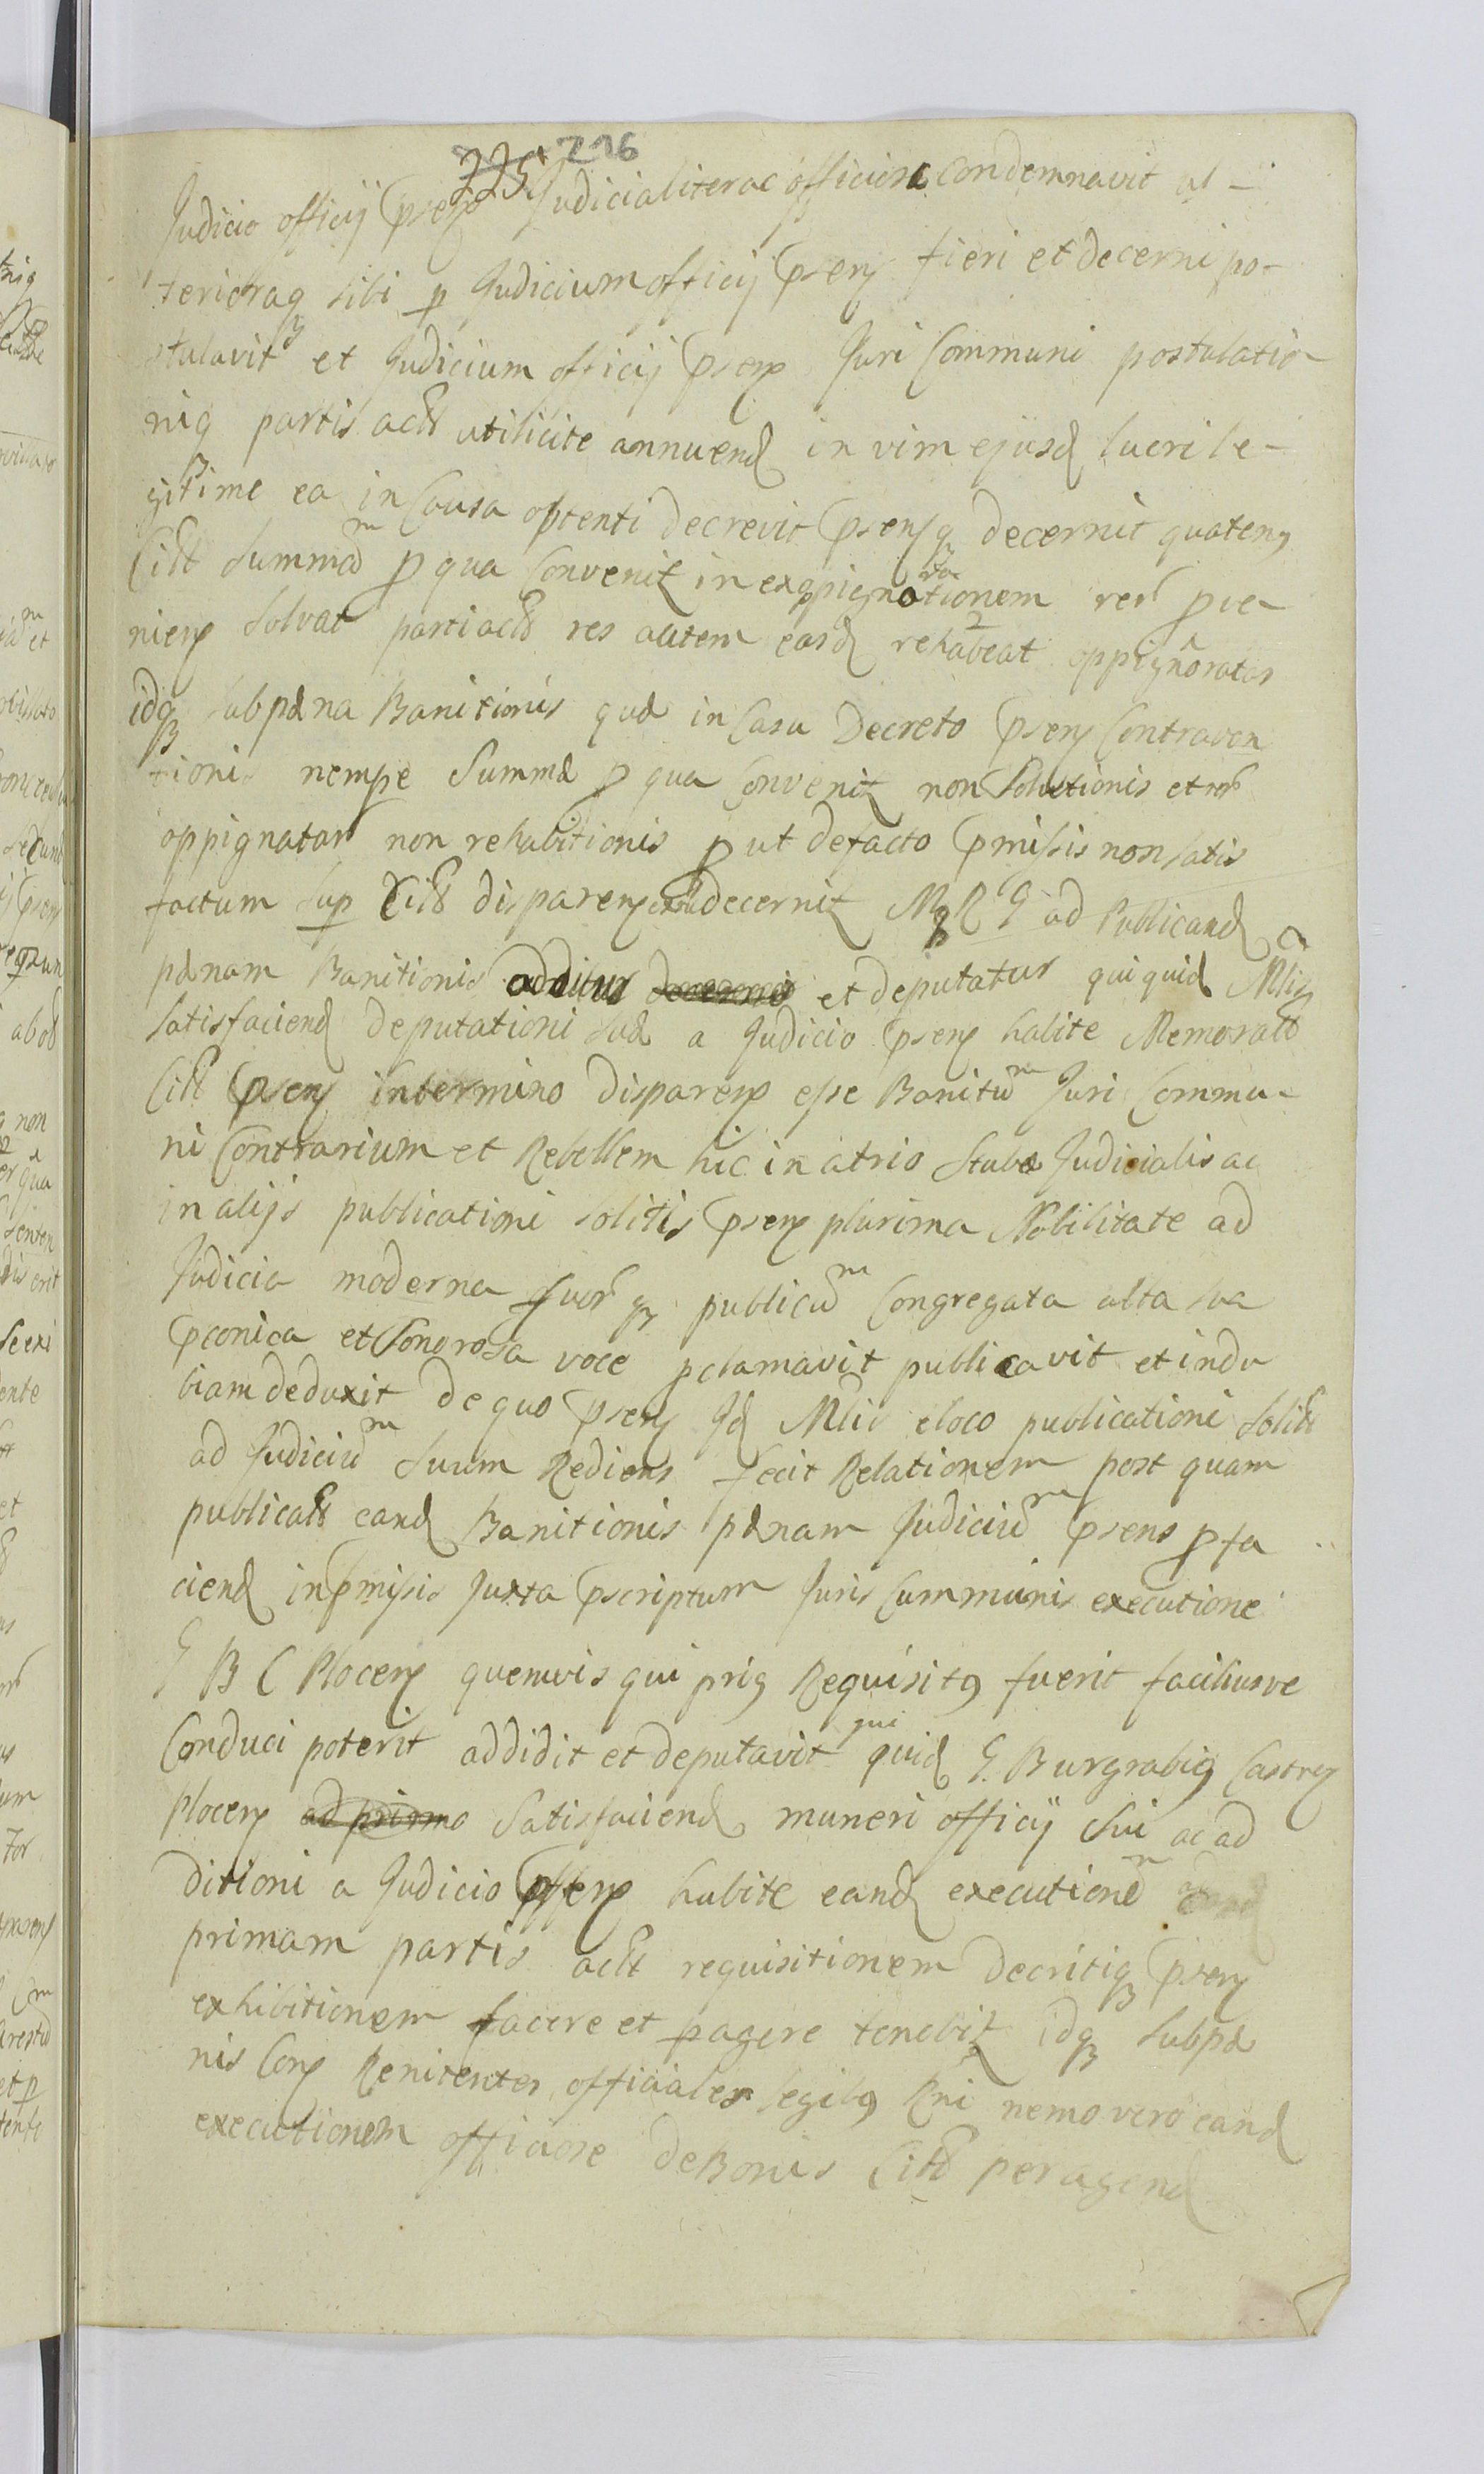 225 216
Judicio officij psens Judicialiter ac officiose condemnavit ul-
teriotaq sibi p Judicium officij psens fieri et decerni po-
stulavit et Judicium officij psens Juri Communi postulatio
niq partis actt utilicite annuend in vim ejusd lucri le-
gitime ea in Causa optenti decrevit psensq decernit quateng
Citt summam p qua Convenit in exppignorationem rer pve-
niens solvat parti actt res autem easd rehabeat oppignoratas
idq sub pæna Banitionis quæ in Casu Decreto psens Contraven
tionis nempe Summæ p qua Convenit non Solutionis et rer
oppignatar non rehabitionis p ut defacto pmissis non satis
factum sup Citt disparens decernit M R G ad Publicand
pænam Banitionis additur et deputatur qui quid Mlis
satisfaciend deputationi suæ a Judicio psens habite Memoratt
Citt psens in termino disparens esse Banitum Juri Commu-
ni Contrarium et Rebellem hic in atrio Stubæ Judicialis ac
in alijs publicationi solitis psens plurima Nobilitate ad
Judicia moderna fuor q publicum Congregata alta sua
pconica et Sonorosa voce pclamavit publicavit et in du
biam deduxit de quo psens Jd Mlis e loco publicationi solitt
ad Judicium Suum Rediens fecit Relationem post quam
publicatt eand Banitionis pænam Judicium psens p fa
ciend in pmissis Juxta pscriptum Juris Communis executione
G B C Plocens quemvis qui prig Requisitg fuerit faciliusve
Conduci poterit addidit et deputavit qui quid G. Burgrabig Castren
Plocens ad primo Satisfaciend muneri officij sui ac ad
ditioni a Judicio psens habite eand executionem ad
primam partis actt requisitionem decritiq psens
exhibitionem facere et pagere tenebit idq sub pæ
nis Cons Renitentes officiales legibg Rni nemo vero eand
executionem officiose de Bonis Citt peragend